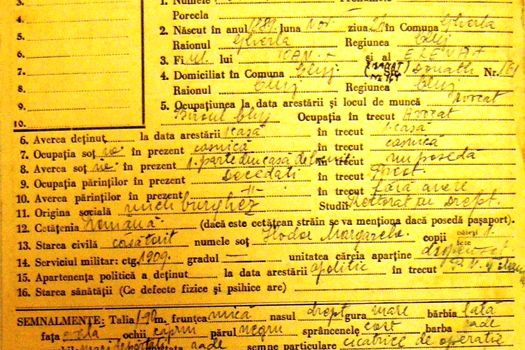 3.
4.
5.
6.
7.
8.
9.
10.
1. Numele Prenumele
Porecla
2. Născut în anul 1889 luna Nov. ziua în Comuna Gherla
Raionul Gherla Regiunea Cluj
3. Fiul lui IOAN și al ELENA
4. Domiciliat în Comuna Cluj Donath Nr. 161
Raionul Cluj Regiunea Cluj
5. Ocupațiunea la data arestării și locul de muncă Avocat
Biroul Cluj Ocupația în trecut Avocat
6. Averea deținut. la data arestării 1 casă în trecut 1 casă
7. Ocupația soț. în prezent casnică în trecut casnică
8. Averea soț. în prezent 1 parte din casa de în trecut nu posedă
9. Ocupația părinților în prezent Decedați în trecut Preot
10. Averea părinților în prezent -"- în trecut fără avere
11. Origina socială mică burghez Studii Doctorat în Drept.
12. Cetățenia Română (dacă este cetățean străin se va menționa dacă posedă pașaport).
13. Starea civilă căsătorit numele soț. Hodor Margareta copii
14. Serviciul militar: ctg. 1909 gradul — unitatea căreia aparține
15. Apartenența politică a deținut. la data arestării apolitic în trecut
16. Starea sănătății (Ce defecte fizice și psihice are)
SEMNALMENTE: Talia m. fruntea mică nasul drept gura mare bărbia lată
fața ovală ochii căprui părul negru sprâncenele barba rade
rade semne particulare cicatrice de operație